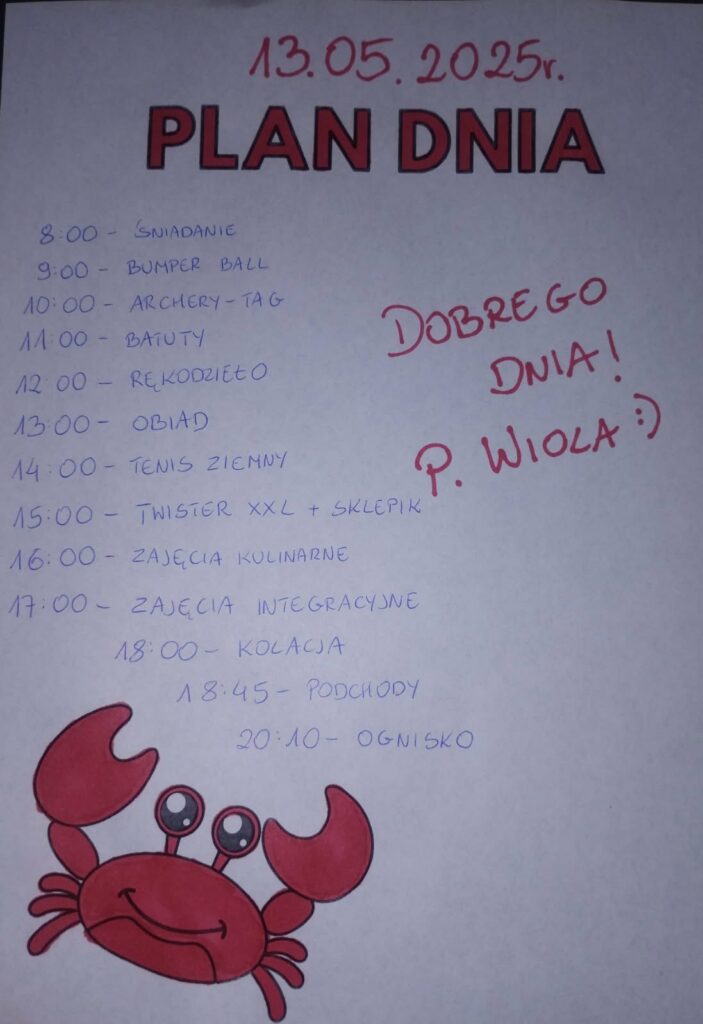 13.05.2025r.
PLAN DNIA
8:00 - ŚNIADANIE
9:00 - BUMPER BALL
10:00 - ARCHERY-TAG
11:00 - BATUTY
12:00 - RĘKODZIEŁO
13:00 - OBIAD
14:00 - TENIS ZIEMNY
15:00 - TWISTER XXL + SKLEPIK
16:00 - ZAJĘCIA KULINARNE
17:00 - ZAJĘCIA INTEGRACYJNE
18:00 - KOLACJA
18:45 - PODCHODY
20:10 - OGNISKO
DOBREGO
DNIA!
P. WIOLA :)